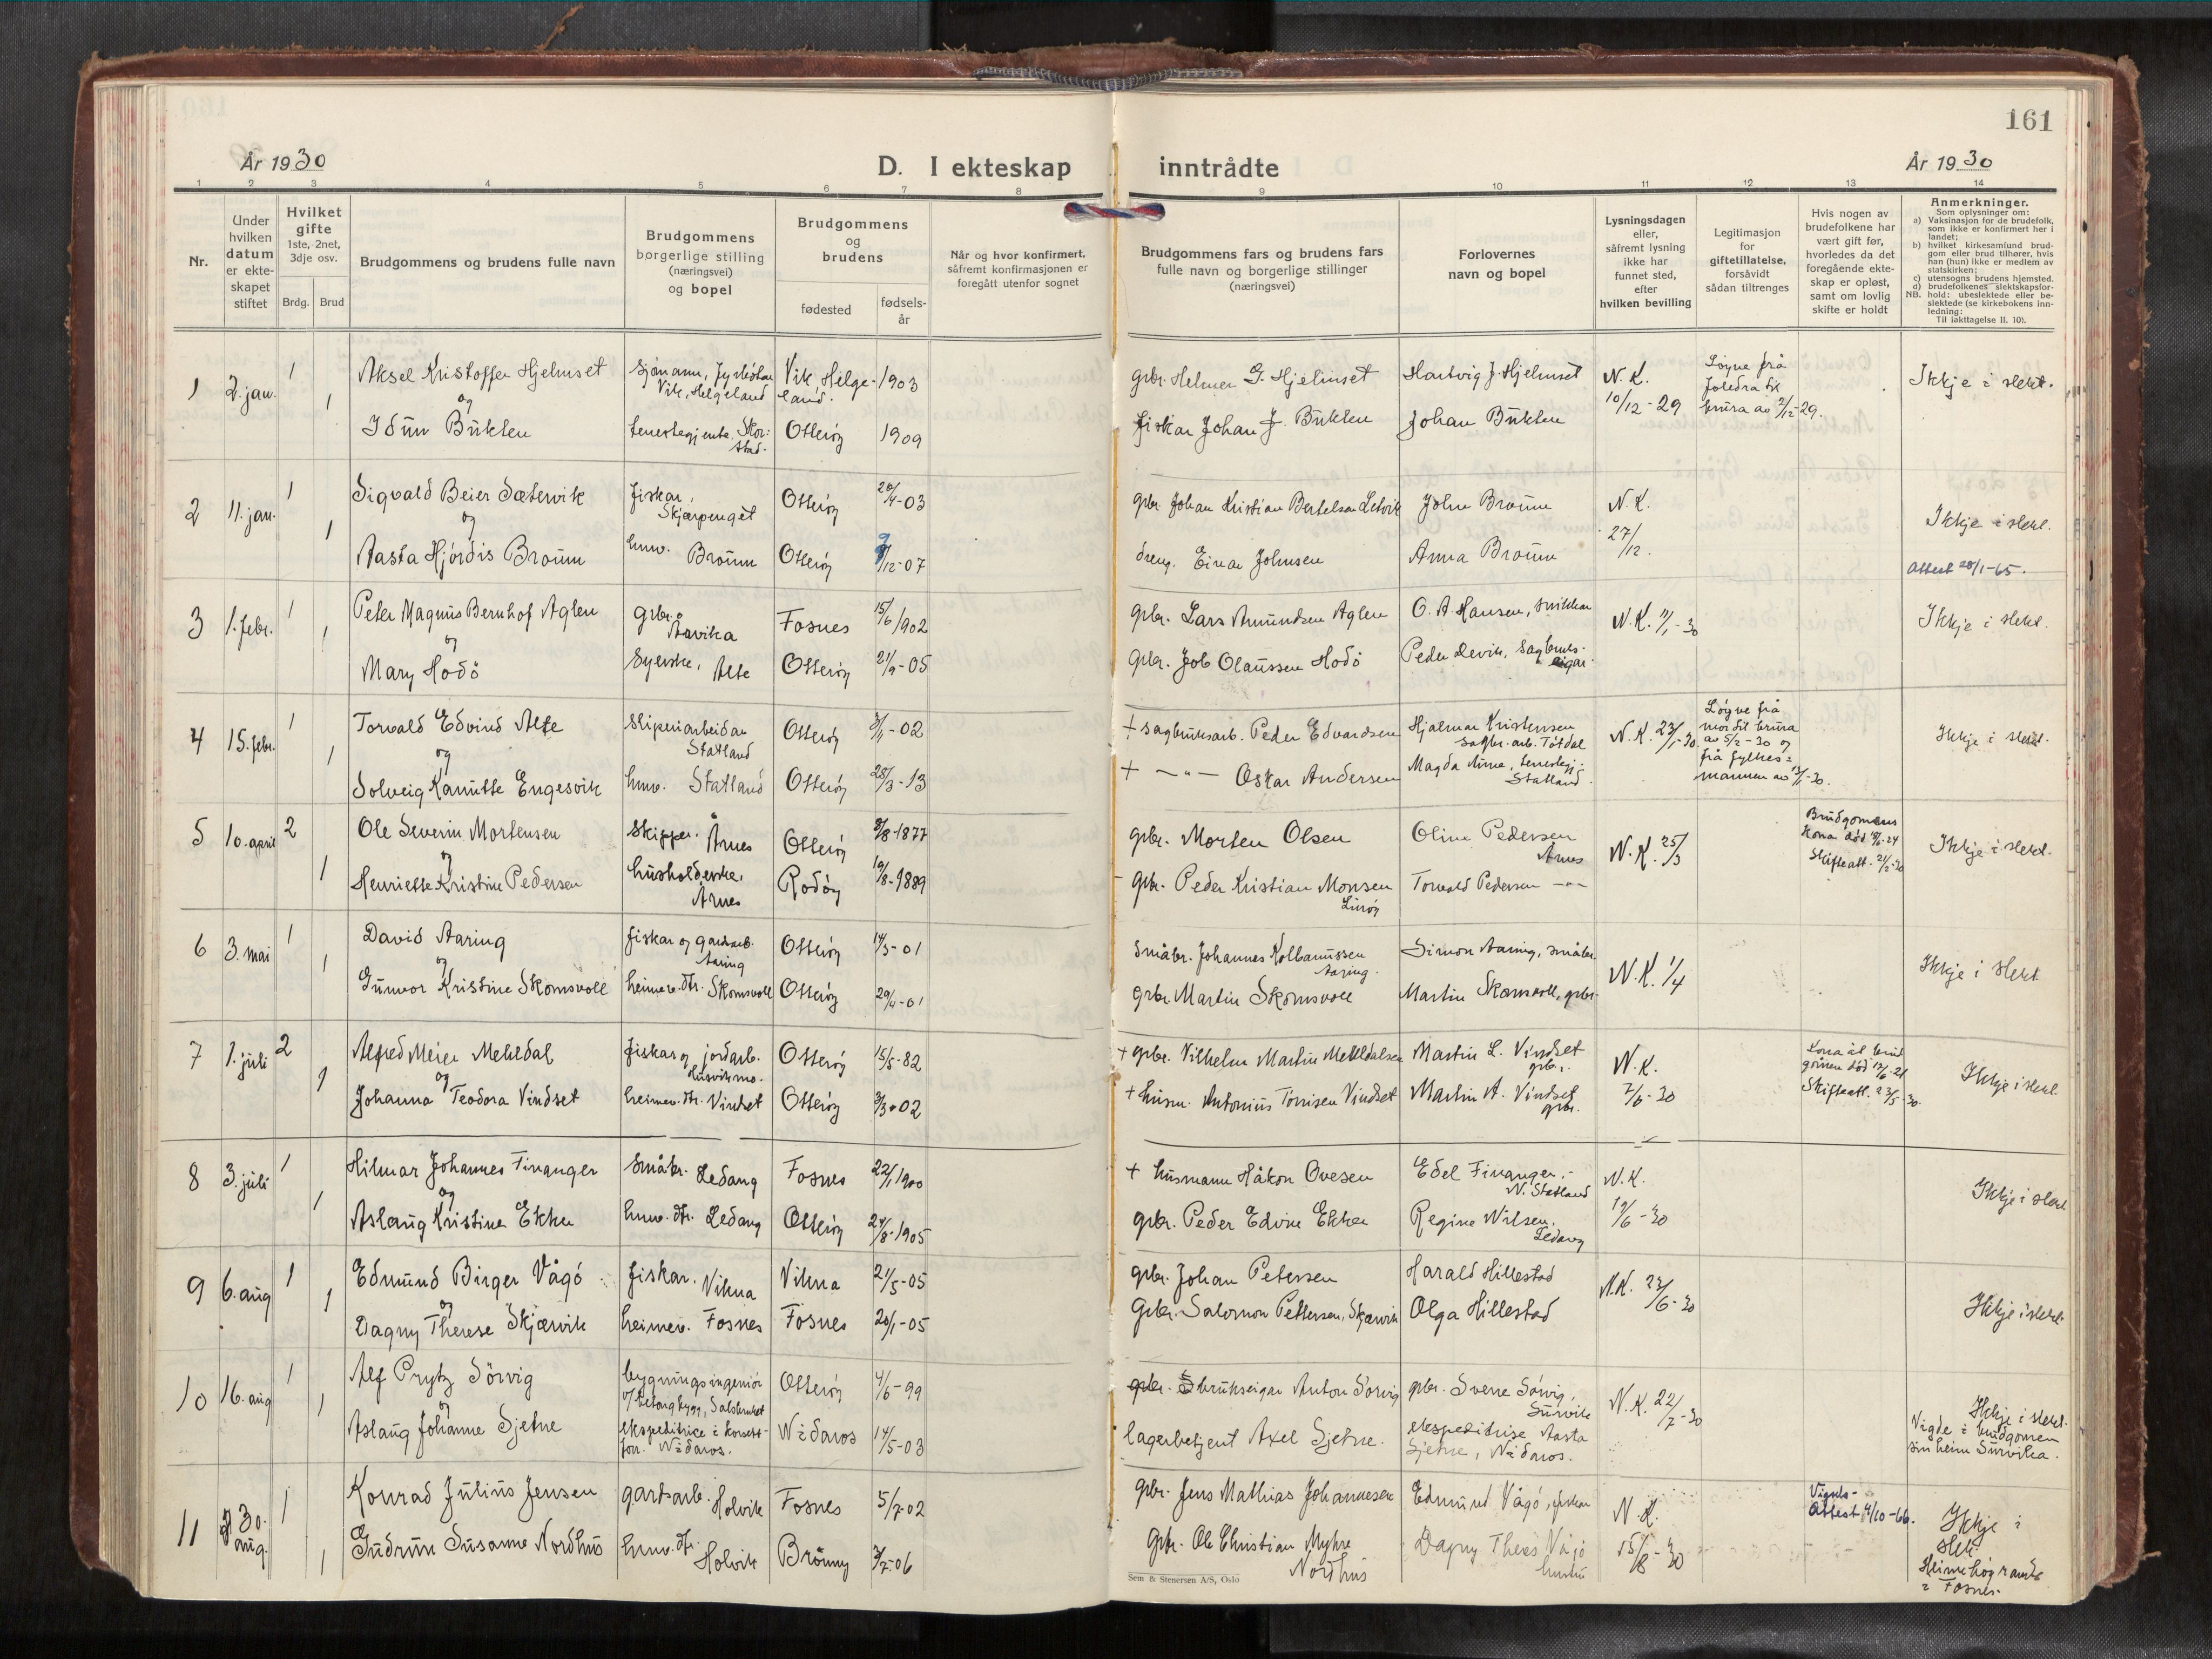 161
År 1930
D. I ekteskap inntrådte
År 1930
1 2 3 4 5 6 7 8 9 10 11 12 13 14
Nr.
Under hvilken datum er ekteskapet stiftet
Hvilket gifte 1ste, 2net, 3dje osv.
Brdg. Brud
Brudgommens og brudens fulle navn
Brudgommens borgerlige stilling (næringsvei) og bopel
Brudgommens og brudens
fødested
fødsels-år
Når og hvor konfirmert, såfremt konfirmasjonen er foregått utenfor sognet
Brudgommens fars og brudens fars fulle navn og borgerlige stillinger (næringsvei)
Forlovernes navn og bopel
Lysningsdagen eller, såfremt lysning ikke har funnet sted, efter hvilken bevilling
Legitimasjon for giftetillatelse, forsåvidt sådan tiltrenges
Hvis nogen av brudefolkene har vært gift før, hvorledes da det foregående ekteskap er opløst, samt om lovlig skifte er holdt
Anmerkninger.
Som oplysninger om:
a) Vaksinasjon for de brudefolk, som ikke er konfirmert her i landet;
b) hvilket kirkesamfund brudgom eller brud tilhører, hvis han (hun) ikke er medlem av statskirken;
c) utensogns brudens hjemsted.
d) brudefolkenes slektskapsforhold: ubeslektede eller beslektede (se kirkebokens innledning:
NB. Til iakttagelse II. 10).
1 2. jan. 1 Aksel Kristoffer Hjelmset Sjømann, Vik, Helgeland Vik, Helgeland. 1903 gbr. Helmer G. Hjelmset Hartvig J. Hjelmset N.K. 10/12-29 Løyve frå foreldra til brura av 2/12-29. Ikkje i slekt.
og
1 Idun Bukten tenestegjente, Otterøy 1909 fiskar Johan J. Bukten Johan Bukten
2 11. jan. 1 Sigvald Beier Sætervik fiskar, Skjærpenget Otterøy 20/4-03 gbr. Johan Kristian Bertelsen John Brøum N.K. 27/12. Ikkje i slekt.
og
1 Aasta Hjørdis Brøum hmv. Brøum Otterøy 9/12-07 dreng. Einar Johnsen Anna Brøum Attest 28/1-65.
3 1. febr. 1 Peter Magnus Bernhof Aglen gbr. Aavika Fosnes 15/6 1902 gbr. Lars Amundsen Aglen O. A. Hansen, snikkar N.K. 11/1-30 Ikkje i slekt.
og
1 Mary Hodø Syerske, Alte Otterøy 21/9-05 gbr. Job Olaussen Hodø Peder Devik, Sagbrukseigar
4 15. febr. 1 Torvald Edvind Alte Sliperiarbeidar Statland Otterøy 3/1-02 + sagbruksarb. Peder Edvardsen Hjalmar Kristensen sagbr.arb. Tøtdal N.K. 23/1-30 Løyve frå mor til brura av 5/2-30 og frå fylkesmannen av 13/1-30. Ikkje i slekt.
og
1 Solveig Kanutte Engesvik hmv. Statland Otterøy 28/3-13 + —"— Oskar Andersen Magda Aune, tenestegj. Statland
5 10. april 2 Ole Severin Mortensen Skipper. Årnes Otterøy 8/8-1877 gbr. Morten Olsen Oline Pedersen Årnes N.K. 25/3 Brudgomens kona død 18/6-24 Skifteatt. 21/2-30 Ikkje i slekt.
og
1 Henriette Kristine Pedersen husholderske, Årnes Rødøy 19/8-1889 gbr. Peder Kristian Monsen Torvald Pedersen —"—
6 3. mai 1 David Aaring fiskar og gardsarb. Aaring Otterøy 14/3-01 Småbr. Johannes Kolbanussen Aaring. Simon Aaring, småbr. N.K. 1/4 Ikkje i slekt
og
1 Gunvor Kristine Skomsvoll heimev. dtr. Skomsvoll Otterøy 29/4-01 gbr. Martin Skomsvoll Martin Skomsvoll, gbr.
7 1. juli 2 Alfred Meier Mehldal fiskar og jordarb. Husvikmo. Otterøy 15/5-82 + gbr. Vilhelm Martin Mehldalsen Martin L. Vindset gbr. N.K. 7/6-30 Kona åt brudgomen død 12/6-21 Skifteatt. 23/5-30. Ikkje i slekt
og
1 Johanna Teodora Vindset heimev. dtr. Vindset Otterøy 3/3-02 + husm. Antonius Tørrisen Vindset Martin A. Vindset gbr.
8 3. juli 1 Hilmar Johannes Finanger Småbr. Ledang Fosnes 22/1 1900 + husmann Håkon Ovesen Edel Finanger. N. Statland N.K. 19/6-30 Ikkje i slekt
og
1 Aslaug Kristine Ekker hmv. dtr. Ledang Otterøy 24/8-1905 gbr. Peder Edvin Ekker Regine Nilsen. Ledang
9 6. aug 1 Edmund Birger Vågø fiskar. Vikna Vikna 21/5-05 gbr. Johan Petersen Harald Hillestad N.K. 23/6-30 Ikkje i slekt
og
1 Dagny Therese Skjærvik heimev. Fosnes Fosnes 20/1-05 Gbr. Salomon Pettersen, Skjærvik Olga Hillestad
10 16. aug 1 Alf Prytz Sørvig bygningsingeniør v/ betongbygg, Salsbruket Otterøy 4/6-99 brukseigar Anton Sørvig gbr. Sverre Sørvig, Survik N.K. 22/7-30 Ikkje i slekt. Vigde i brudgomen sin heim Survika.
og
1 Aslaug Johanne Sjetne ekspeditrice i korsettforr. Nidaros. Nidaros 14/5-03 lagerbetjent Axel Sjetne. ekspeditrise Aasta Sjetne, Nidaros.
11 30. aug. 1 Konrad Julius Jensen gardsarb. Holvik Fosnes 5/7-02 gbr. Jens Mathias Johannesen Edmund Vågø, fiskar N.K. 15/8-30 Vigsels-Attest 4/10-66. Ikkje i slekt
1 Gudrun Susanne Nordhus hmv. dtr. Holvik Brønnøy 3/7-06 Gbr. Ole Christian Myhre Nordhus Dagny Theres Vågø hustru i Fosnes.
Sem & Stenersen A/S, Oslo